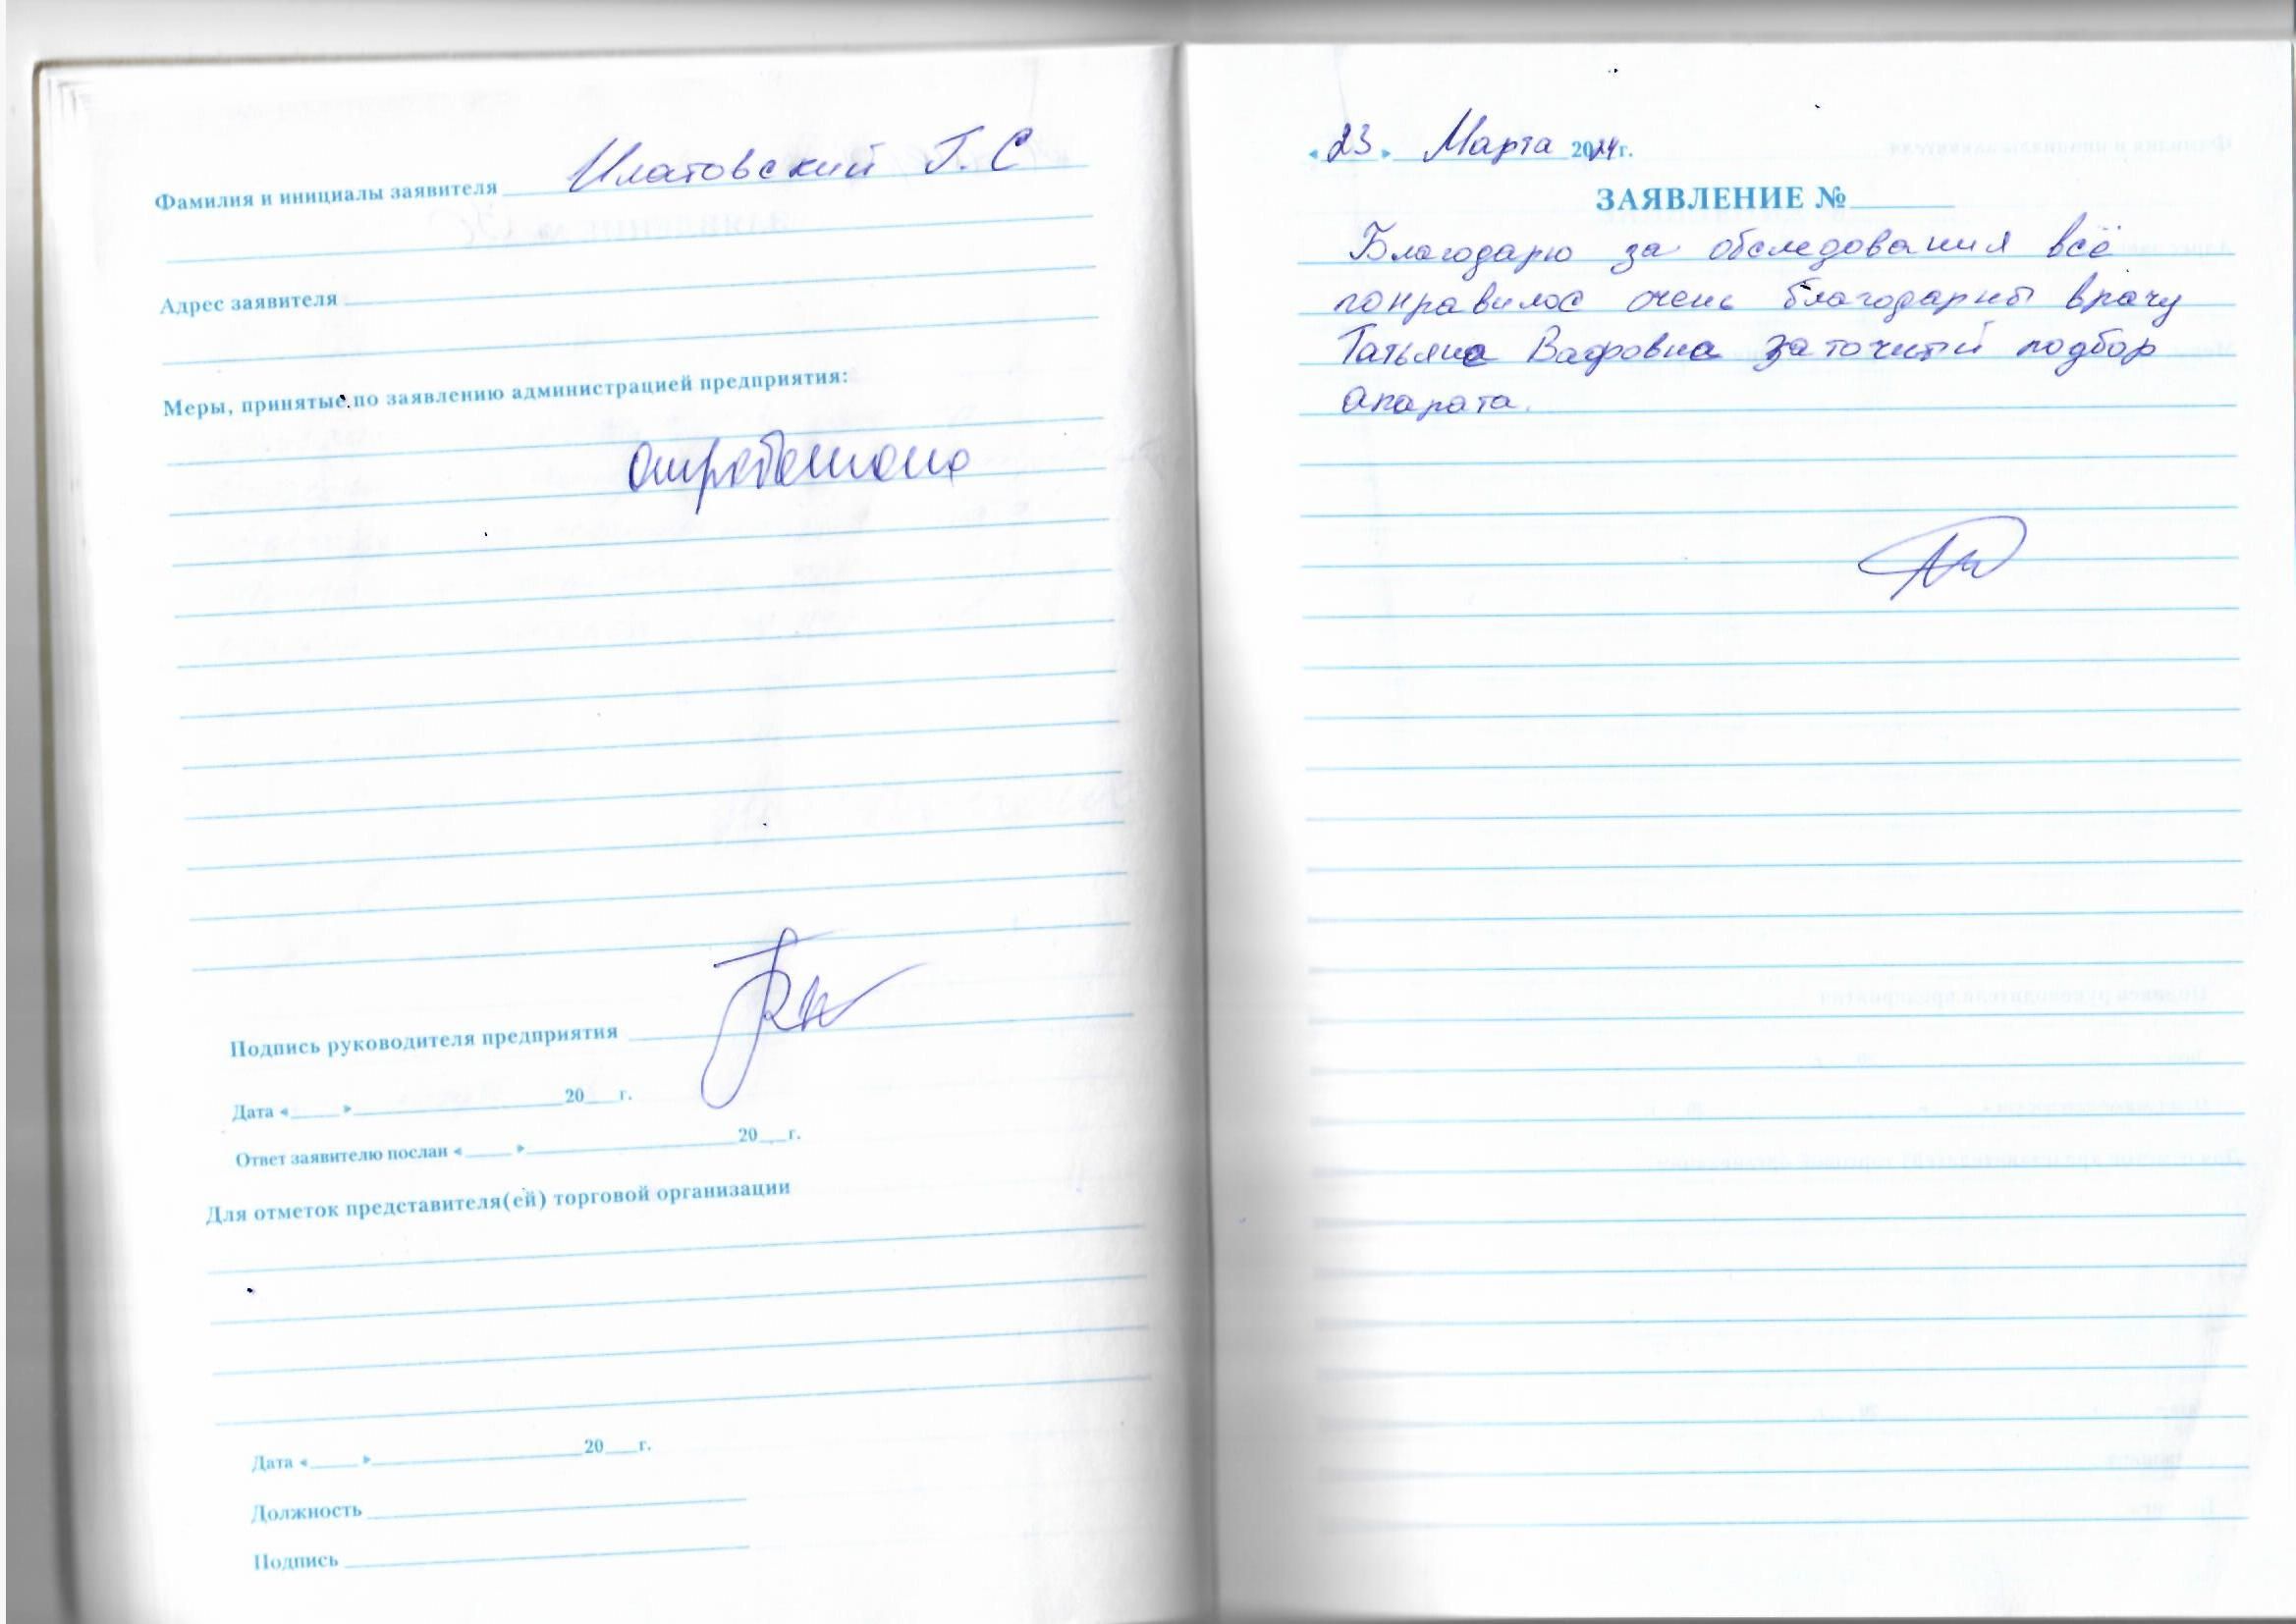 Фамилия и инициалы заявителя Илатовский Г.С
Адрес заявителя
Меры, принятые по заявлению администрацией предприятия:
Подпись руководителя предприятия
Дата « » 20 г.
Ответ заявителю послан « » 20 г.
Для отметок представителя(ей) торговой организации
Дата « » 20 г.
Должность
Подпись
« 23 » Марта 2024 г.
ЗАЯВЛЕНИЕ №
Благодарю за обследования всё
понравилос очень благодарны врачу
Татьяна Вафовна за точный подбор
апарата.